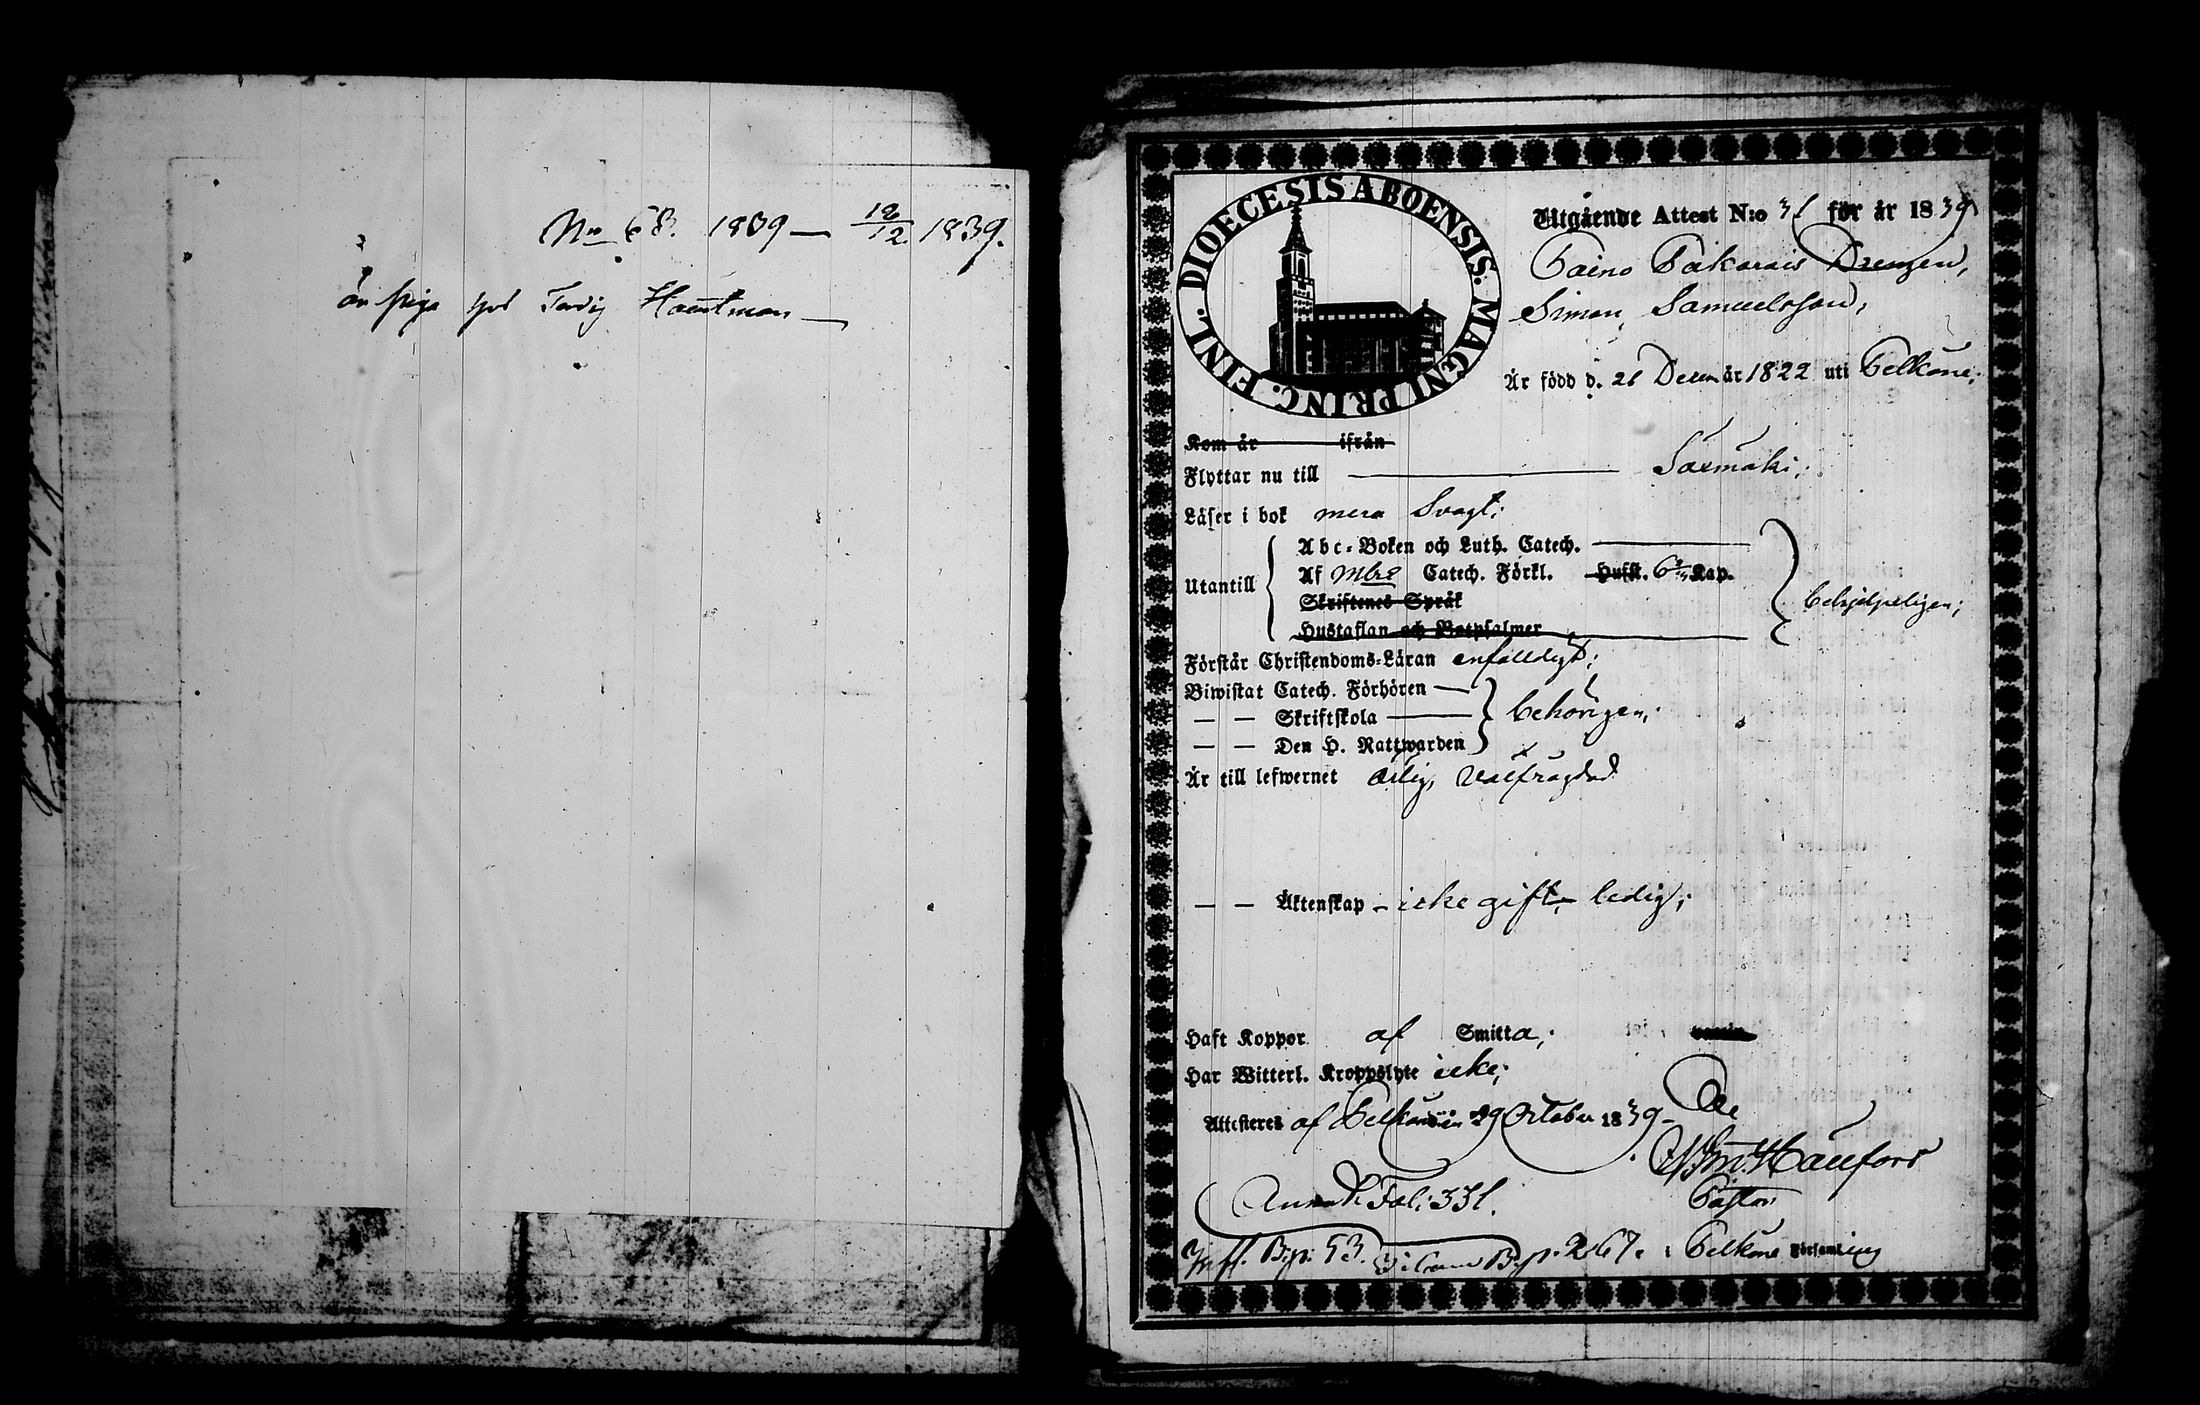 No 68. 1839 — 12/12. 1839.
än piga hos Hauptman —
DIOECESIS ABOENSIS. MAGNI PRINC. FINL.
Utgående Attest N:o 31 för år 1839
Drengen,
Simon Samuelsson,
Är född d. 26 Decem år 1822 uti Pelkäne;
Kom år ifrån
Flyttar nu till — Säxmäki;
Läser i bok mera Svagt;
Utantill
Abc-Boken och Luth. Catech. —
Af Catech. Förkl. Husst. Kap.
Skriftenes Språk
Hustaflan och Botpsalmer
behjelpeligen;
Förstår Christendoms-Läran enfalldigt;
Biwistat Catech. Förhören —
— — Skriftskola —
— — Den H. Nattwarden
behörigen;
Är till lefwernet ärlig, välfrägdad
— — Äktenskap – icke gift, – ledig;
Haft Koppor af Smitta;
Har Witterl. Kroppslyte icke;
Attesteras af Pelkäne den 29 October 1839 –
Foli: 331.
Pastor
Infl. B. p. 53. B. p. 267. i Pelkäne Församling